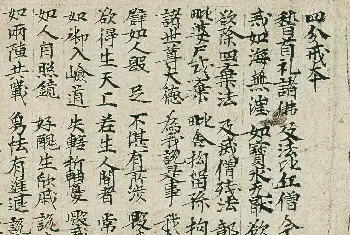 四分戒本
稽首禮諸佛 及法比丘僧 今
戒如海無涯 如寶求無厭 欲
欲除四棄法 及滅僧殘法 鄣
毗婆尸式棄 毗舍拘留孫 拘
諸世尊大德 為我說是事 我
譬如人毀足 不堪有所涉 毀
欲得生天上 若生人間者 常
如御入嶮道 失轄折軸憂 毀
如人自照鏡 好醜生欣慼 說
如兩陣共戰 勇怯有進退 說